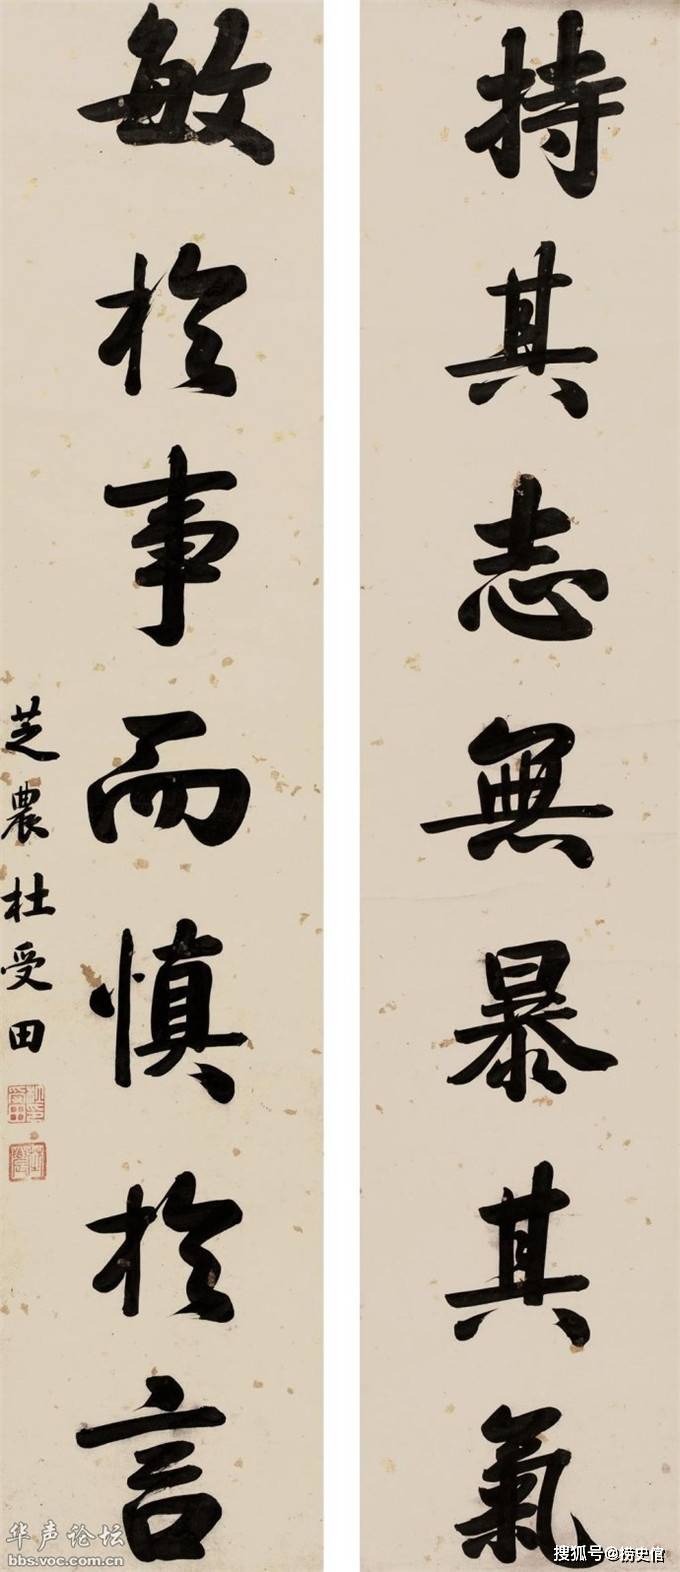 持其志無暴其氣
敏於事而慎於言
芝農杜受田
华声论坛
bbs.voc.com.cn
搜狐号@捞史馆